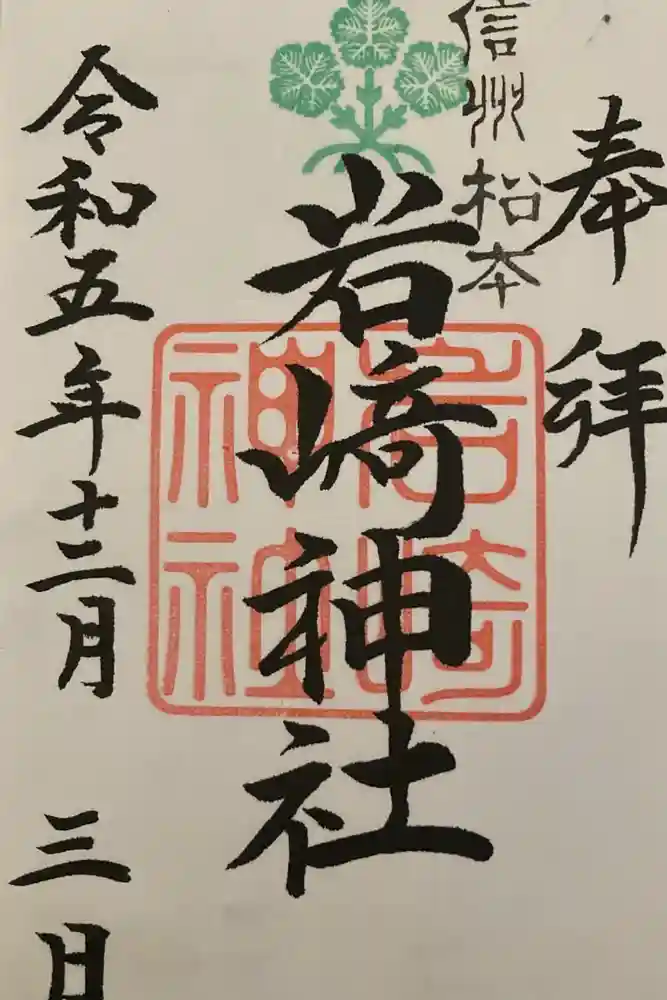 奉拝
信州松本
岩崎神社
岩崎神社
令和五年十二月三日